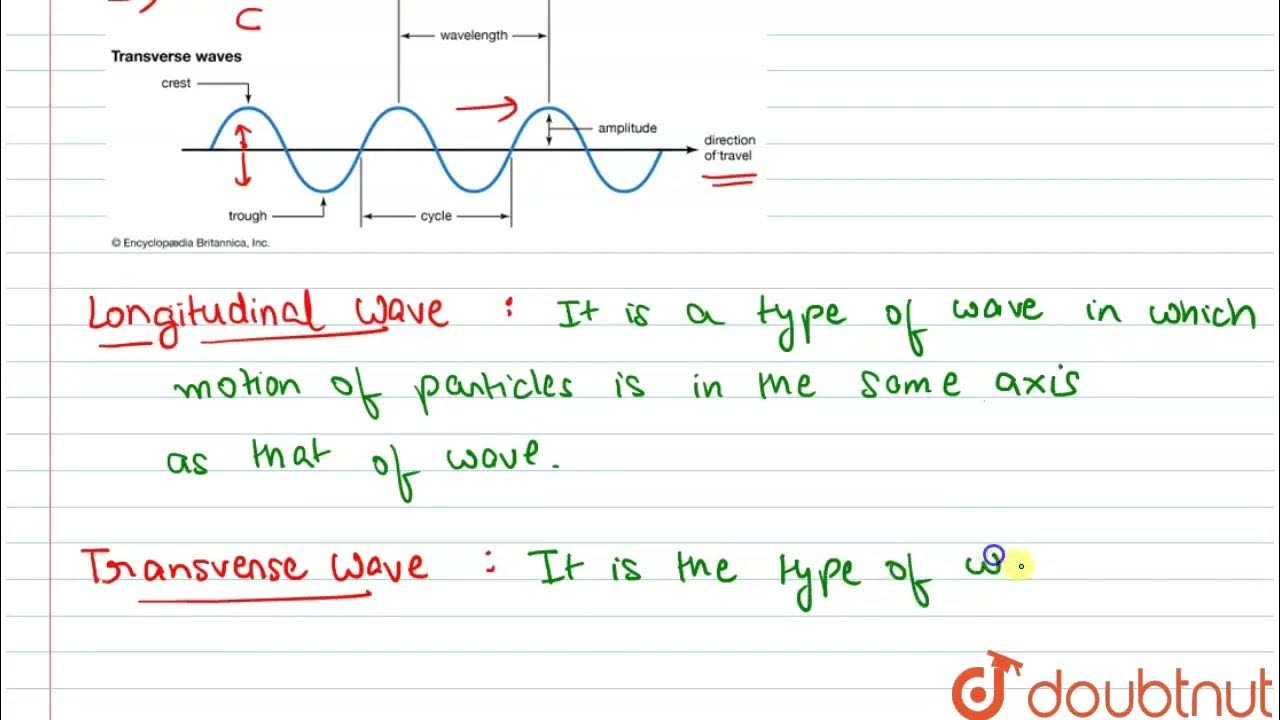 C
wavelength
Transverse waves
crest
amplitude
direction
of travel
trough
cycle
© Encyclopædia Britannica, Inc.
Longitudinal wave : It is a type of wave in which
motion of particles is in the same axis
as that of wave.
Transverse wave : It is the type of w
doubtnut